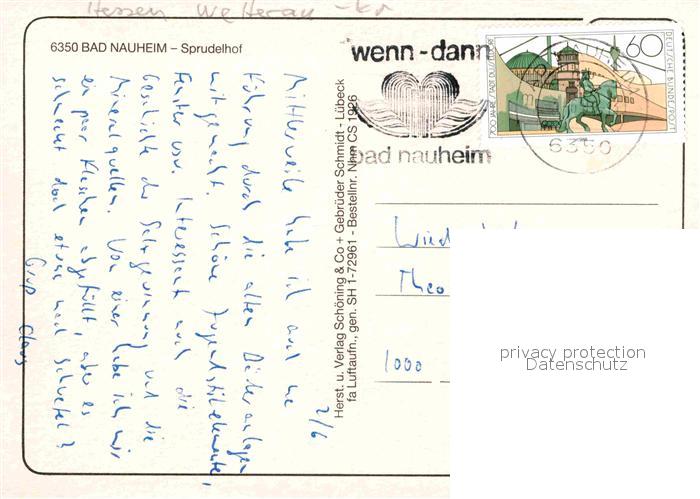 Hessen Wetterau-Kr
6350 BAD NAUHEIM – Sprudelhof
wenn-dann
bad nauheim
60
DEUTSCHE BUNDESPOST
700 JAHRE STADT DÜSSELDORF
6350
2/6
Mittlerweile habe ich auch ne
Führung durch die alten Bäderanlagen
mitgemacht. Schöne Jugendstilelemente,
Fenster usw. Interessant auch die
Geschichte der Salzgewinnung und die
Mineralquellen. Von einer habe ich mir
ein paar Flaschen abgefüllt, aber es
schmeckt doch etwas nach Schwefel?
Gruß Claus
Herst. u. Verlag Schöning & Co + Gebrüder Schmidt - Lübeck
fa Luftaufn., gen. SH 1-72961 - Bestellnr. Nhm CS 1926
Theo
1000
privacy protection
Datenschutz